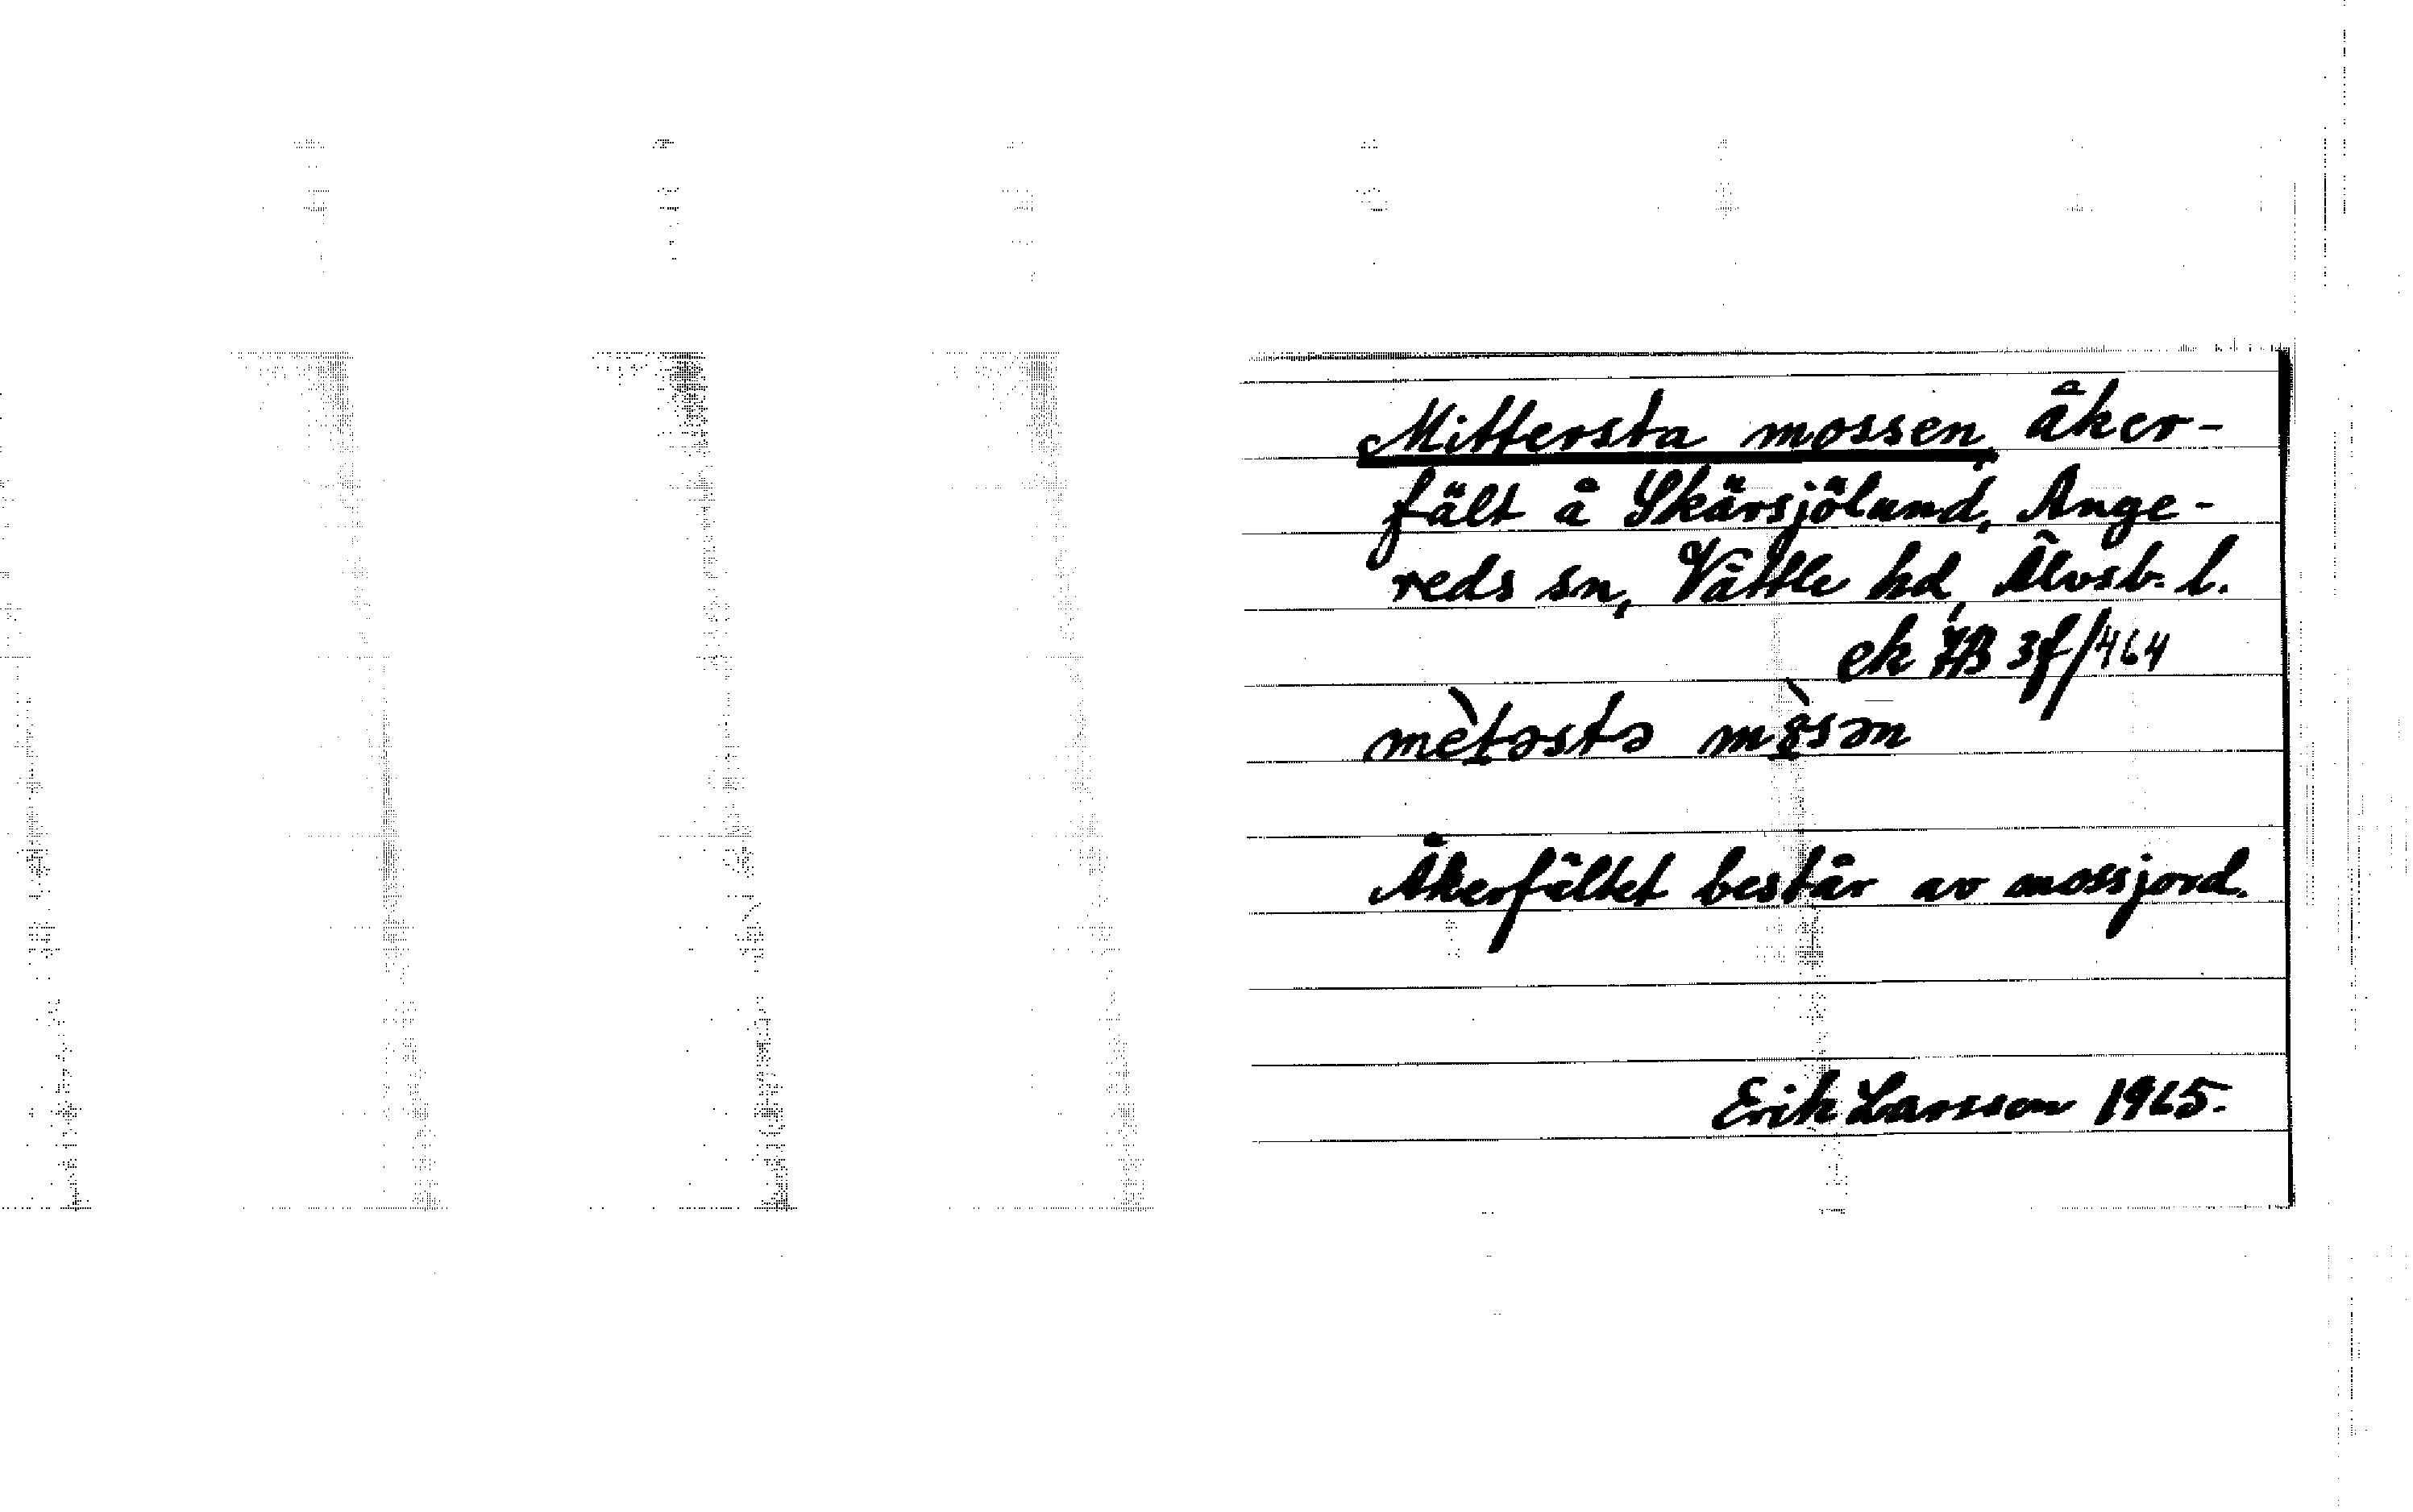 Mittersta mossen, åker-
fält å Skärsjölund, Ange-
reds sn, Vättle hd, Älvsb. l.
ek 7B 3f/464
mètəstə mòsən
Åkerfältet består av mossjord.
Erik Larsson 1965.